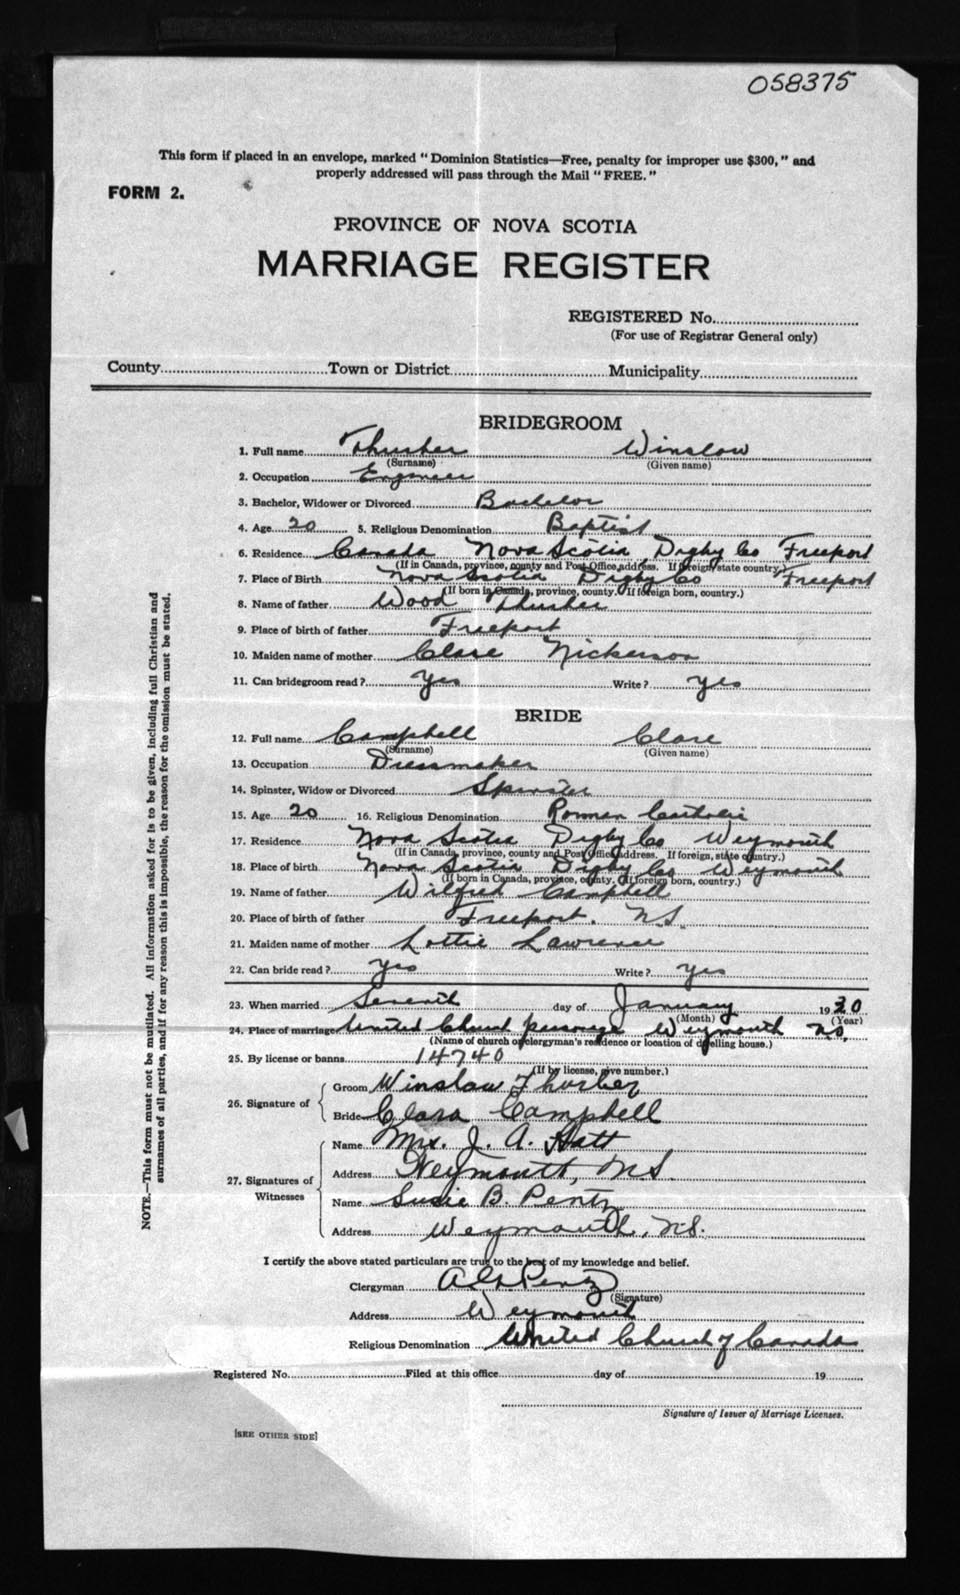 058375
This form if placed in an envelope, marked "Dominion Statistics—Free, penalty for improper use $300," and
properly addressed will pass through the Mail "FREE."
FORM 2.
PROVINCE OF NOVA SCOTIA
MARRIAGE REGISTER
REGISTERED No.
(For use of Registrar General only)
County Town or District Municipality
BRIDEGROOM
1. Full name Thurber Winslow
(Surname) (Given name)
2. Occupation Engineer
3. Bachelor, Widower or Divorced Bachelor
4. Age 20 5. Religious Denomination Baptist
6. Residence Canada Nova Scotia Digby Co Freeport
(If in Canada, province, county and Post Office address. If foreign state country.)
7. Place of Birth Nova Scotia Digby Co Freeport
(If born in Canada, province, county. If foreign born, country.)
8. Name of father Wood Thurber
9. Place of birth of father Freeport
10. Maiden name of mother Clare Nickerson
11. Can bridegroom read? Yes Write? Yes
BRIDE
12. Full name Campbell Clare
(Surname) (Given name)
13. Occupation Dressmaker
14. Spinster, Widow or Divorced Spinster
15. Age 20 16. Religious Denomination Roman Catholic
17. Residence Nova Scotia Digby Co Weymouth
(If in Canada, province, county and Post Office address. If foreign, state country.)
18. Place of birth Nova Scotia Digby Co Weymouth
(If born in Canada, province, county. If foreign born, country.)
19. Name of father Wilfred Campbell
20. Place of birth of father Freeport. N.S.
21. Maiden name of mother Lottie Lawrence
22. Can bride read? Yes Write? Yes
23. When married Seventh day of January 1930
(Month) (Year)
24. Place of marriage United Church parsonage Weymouth N.S.
(Name of church or clergyman's residence or location of dwelling house.)
25. By license or banns 14740
(If by license, give number.)
26. Signature of Groom Winslow Thurber
Bride Clara Campbell
27. Signatures of Witnesses Name Mrs. J. A. Hatt
Address Weymouth, N.S.
Name Susie B. Pentz
Address Weymouth, N.S.
I certify the above stated particulars are true to the best of my knowledge and belief.
Clergyman Pentz
(Signature)
Address Weymouth
Religious Denomination United Church of Canada
Registered No. Filed at this office day of 19
Signature of Issuer of Marriage Licenses.
[SEE OTHER SIDE]
NOTE.—This form must not be mutilated. All information asked for is to be given, including full Christian and
surnames of all parties, and if for any reason this is impossible, the reason for the omission must be stated.